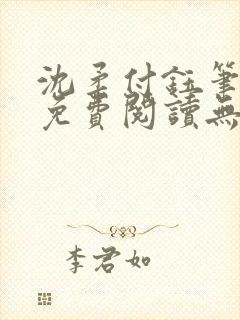 沈柔付鈺筆
免費閱讀無
李君如